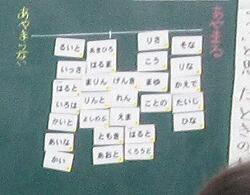 あやまらない
あやまる
るいと
あきひろ
りさ
そな
いっさ
はるま
こう
りな
まりん
げんき
まゆ
かえで
はると
りんと
れん
ことの
たいし
いろは
かいと
よしのぶ
えま
ひな
あいな
ともき
はると
かい
あおと
くろうど